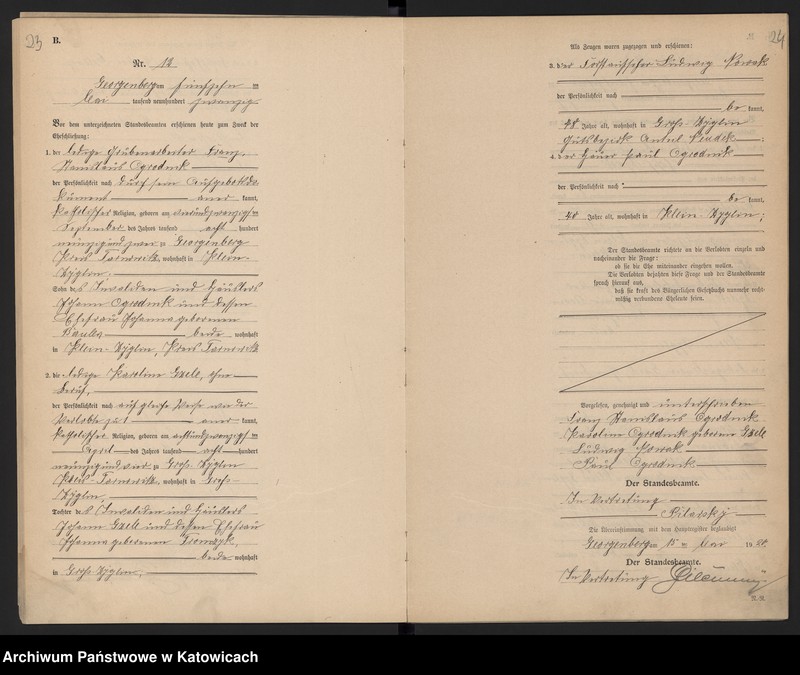 23
B.
Nr. 12
Georgenberg am fünfzehn ten
Mai tausend neunhundert zwanzig
Vor dem unterzeichneten Standesbeamten erschienen heute zum Zweck der
Eheschließung:
1. der ledige Grubenarbeiter Franz,
Stanislaus Ogrodnik
der Persönlichkeit nach durch sein Aufgebotsdo-
kument aner kannt,
katholischer Religion, geboren am vierundzwanzigsten
September des Jahres tausend acht hundert
neunzig und zwei zu Georgenberg
Kreis Tarnowitz, wohnhaft in Klein-
Zyglin,
Sohn des Invaliden und Häuslers
Johann Ogrodnik und dessen
Ehefrau Johanna geborenen
beide wohnhaft
in Klein-Zyglin, Kreis Tarnowitz
2. die ledige Karoline Gzell, ohne
Beruf,
der Persönlichkeit nach auf gleiche Weise wie der
Verlobte zu 1 aner kannt,
katholischer Religion, geboren am achtundzwanzigsten
April des Jahres tausend acht hundert
neunzig und vier zu Groß-Zyglin
Kreis Tarnowitz, wohnhaft in Groß-
Zyglin,
Tochter des Invaliden und Häuslers
Johann Gzell und dessen Ehefrau
Johanna geborenen
beide wohnhaft
in Groß-Zyglin,
24
Als Zeugen waren zugezogen und erschienen:
3. der Ludwig Nowak
der Persönlichkeit nach
be kannt,
48 Jahre alt, wohnhaft in Groß-Zyglin
Gutsbezirk Anteil Neudek;
4. der Häuer Paul Ogrodnik
der Persönlichkeit nach
be kannt,
40 Jahre alt, wohnhaft in Klein-Zyglin;
Der Standesbeamte richtete an die Verlobten einzeln und
nacheinander die Frage:
ob sie die Ehe miteinander eingehen wollen.
Die Verlobten bejahten diese Frage und der Standesbeamte
sprach hierauf aus,
daß sie kraft des Bürgerlichen Gesetzbuchs nunmehr recht-
mäßig verbundene Eheleute seien.
Vorgelesen, genehmigt und unterschrieben
Franz Stanislaus Ogrodnik
Karoline Ogrodnik geborene Gzell
Ludwig Nowak
Paul Ogrodnik
Der Standesbeamte.
In Vertretung
Pilarsky
Die Übereinstimmung mit dem Hauptregister beglaubigt
Georgenberg am 15 ten Mai 1920.
Der Standesbeamte.
In Vertretung
Archiwum Państwowe w Katowicach